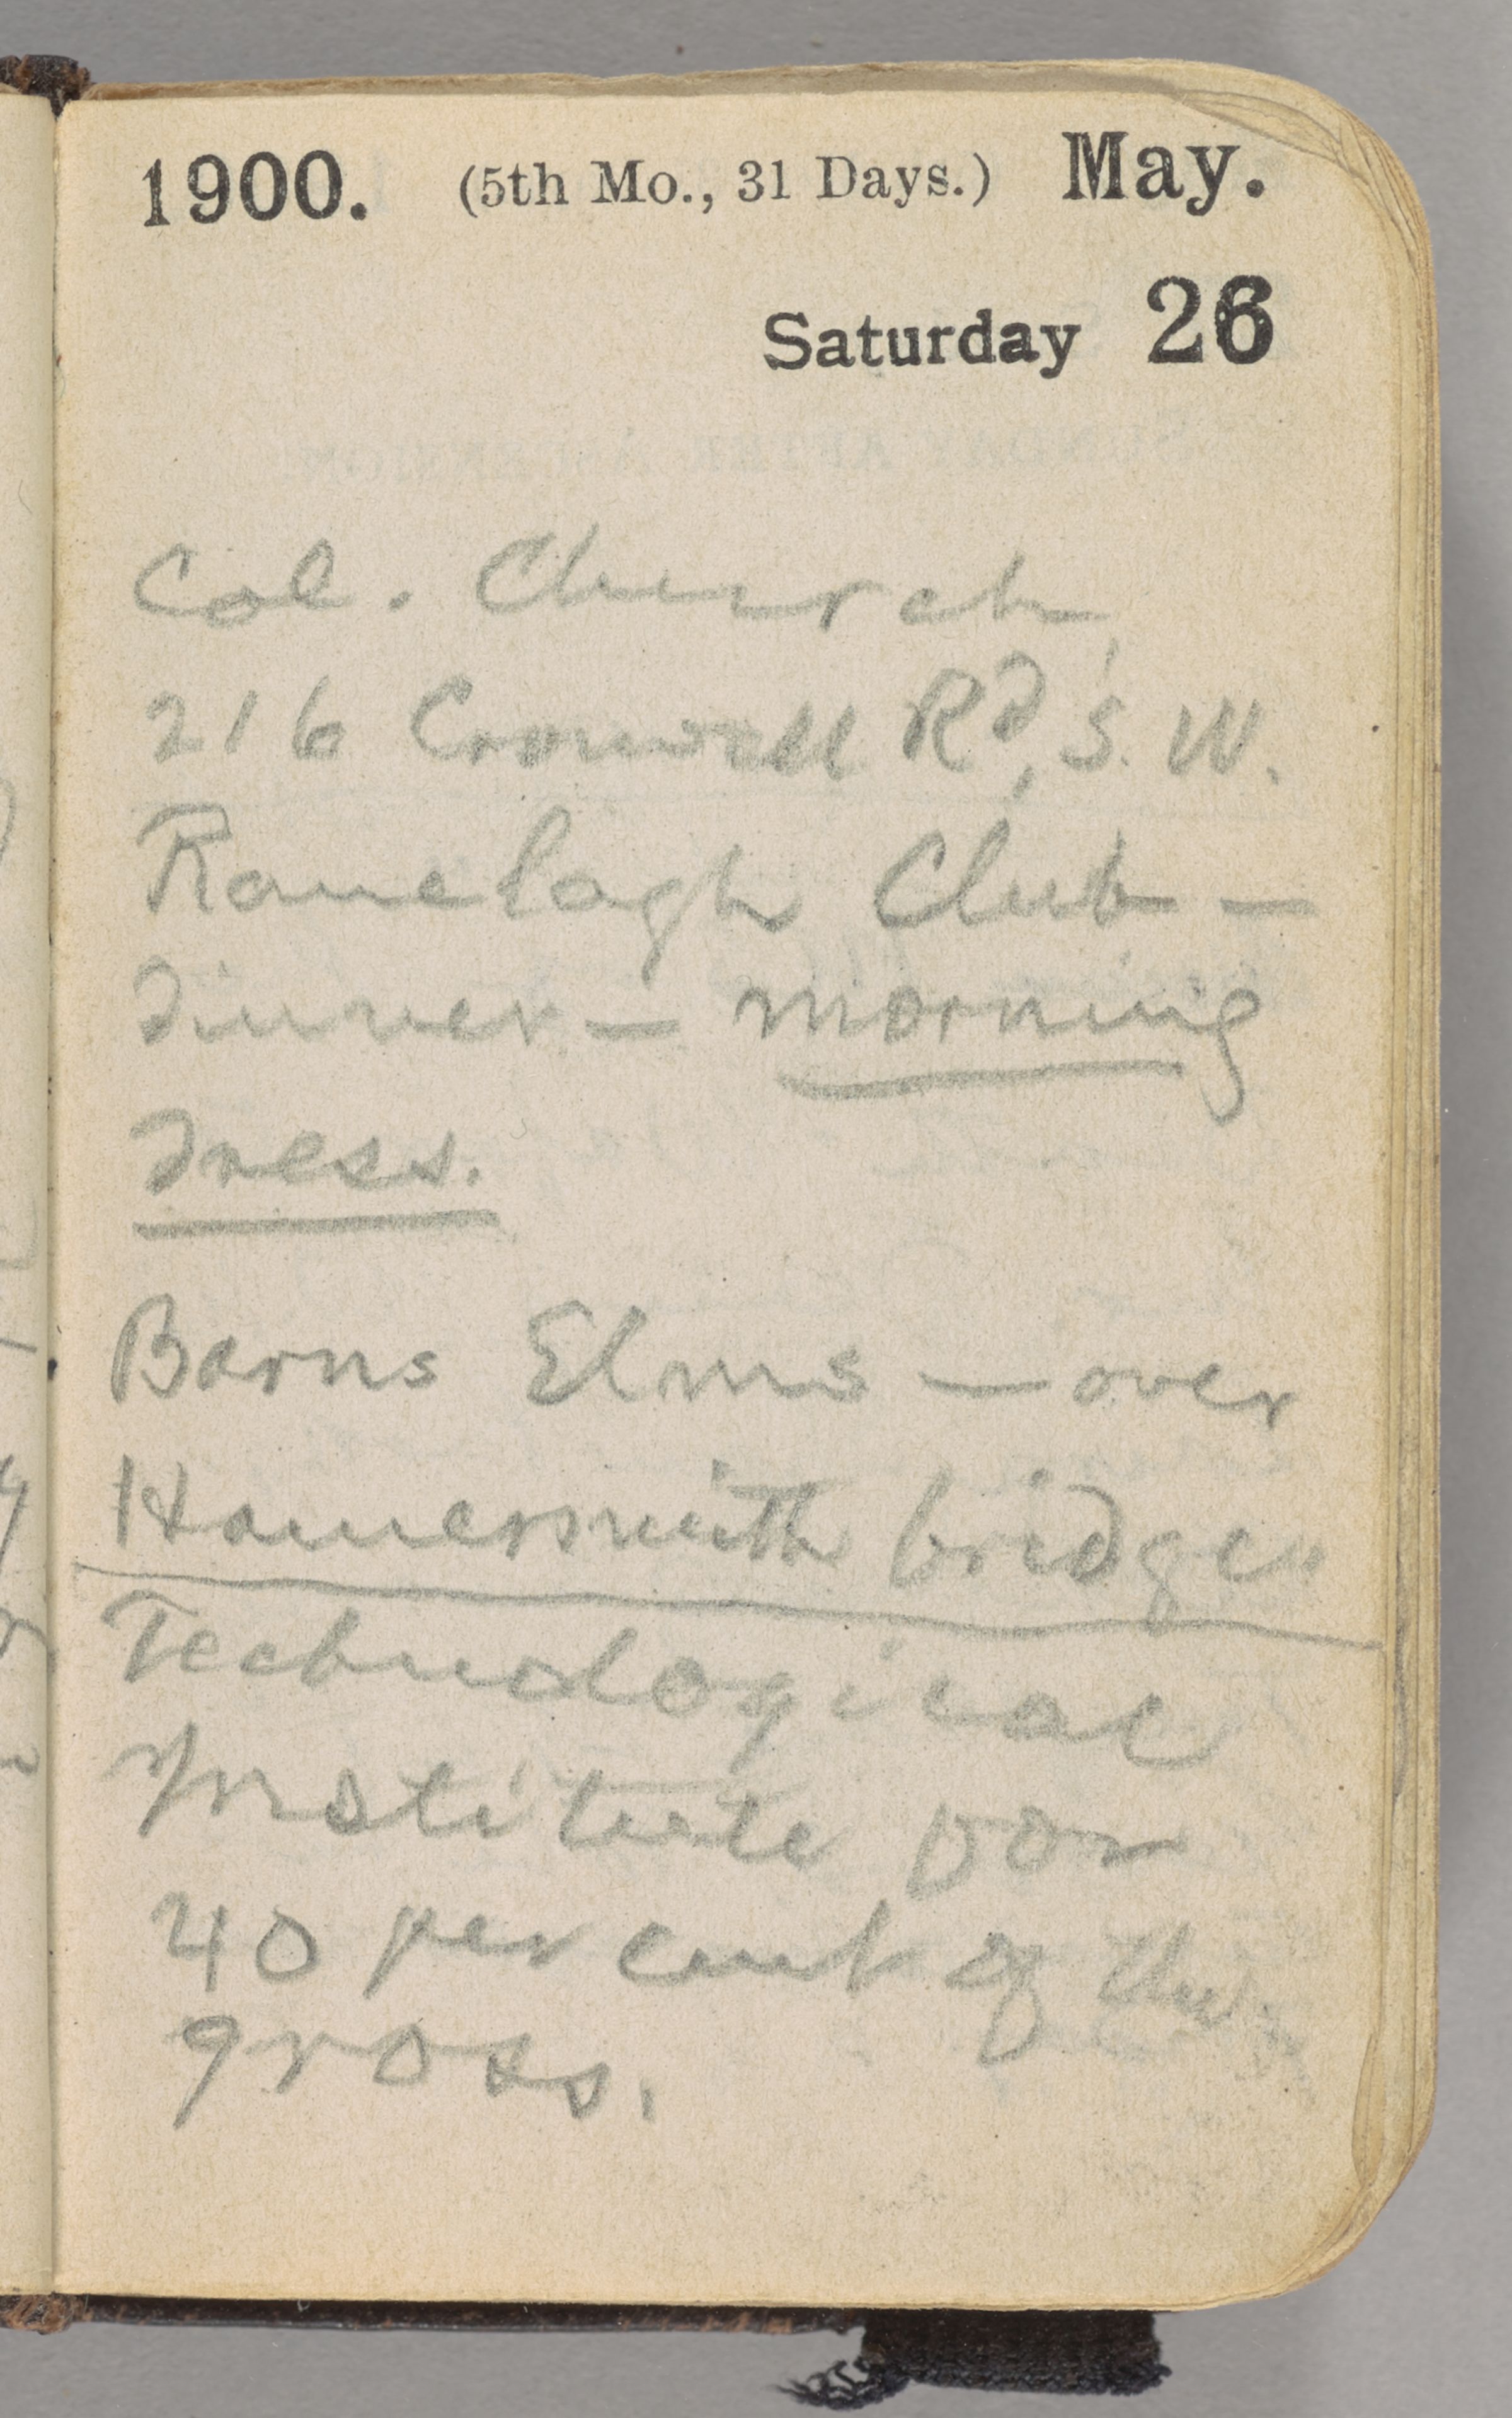 1900. (5th Mo., 31 Days.) May.
Saturday 26
Col. Church,
216 Cromwell Rd, S. W.
Ranelagh Club —
dinner — morning
dress.
Barns Elms — over
Hamersmith bridge.
Technological
Institute
40 per cent of the
gross.